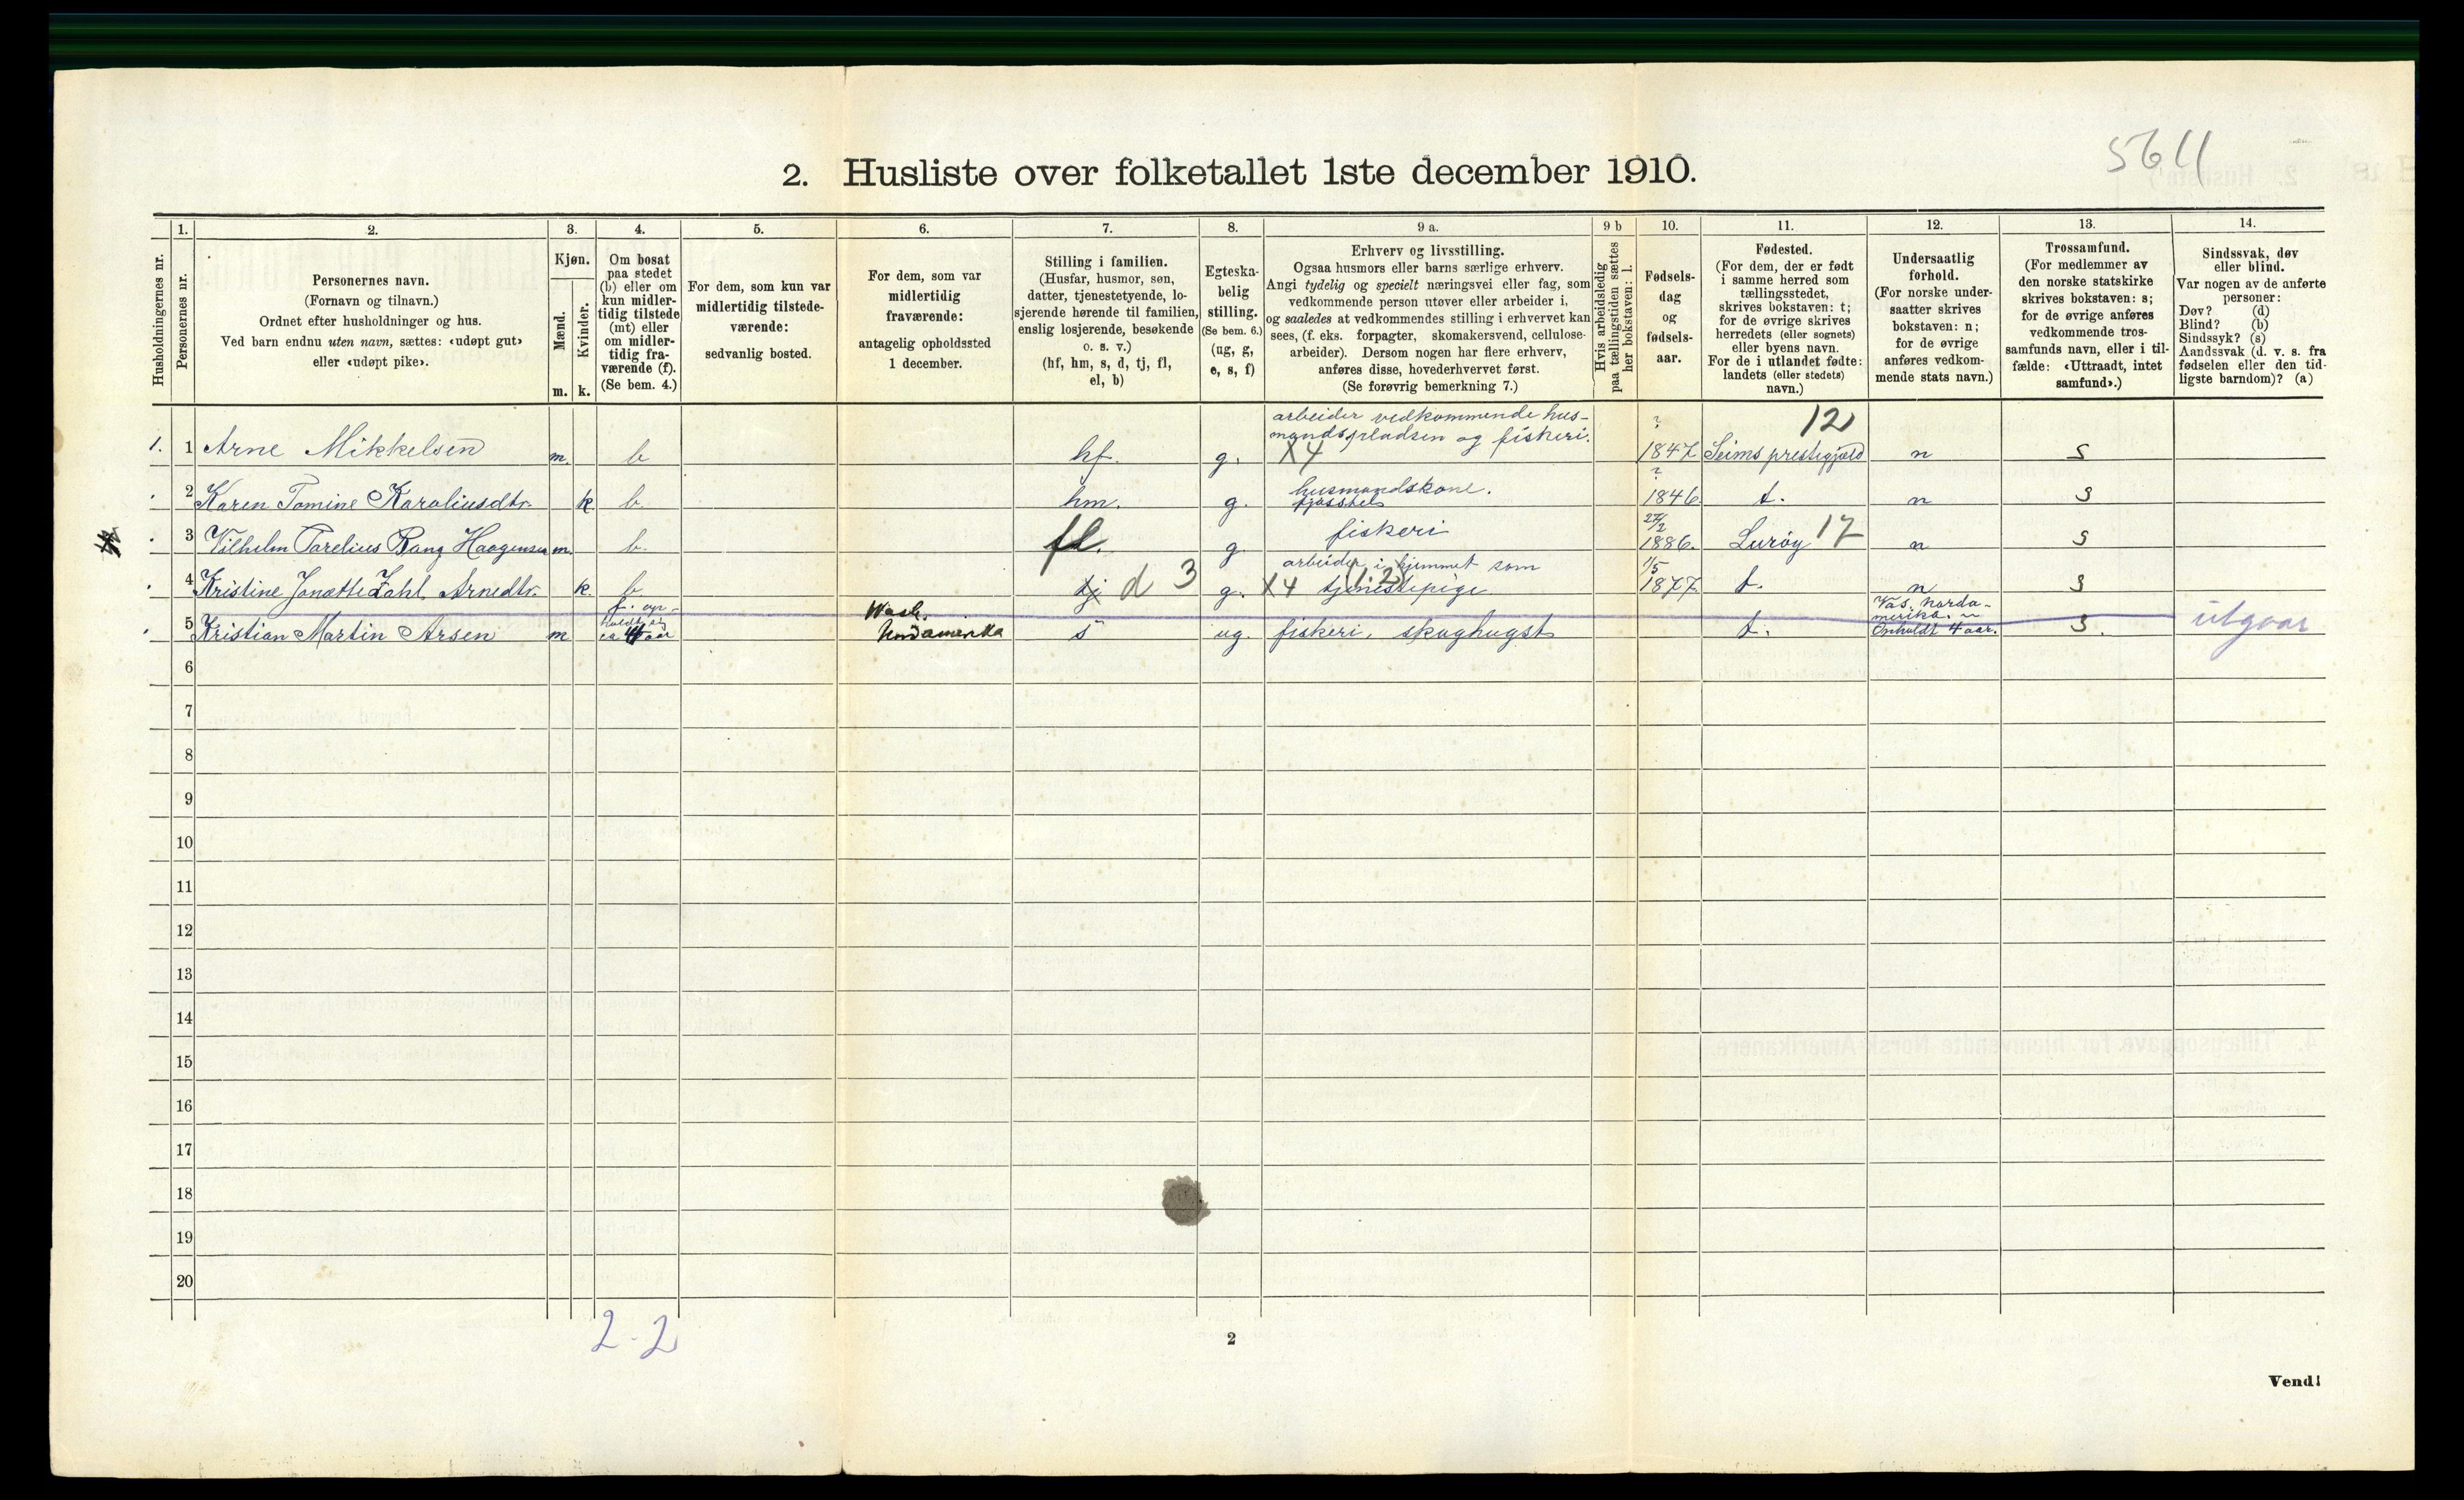 5611
2. Husliste over folketallet 1ste december 1910.
1. 2. 3. 4. 5. 6. 7. 8. 9 a. 9 b 10. 11. 12. 13. 14.
Husholdningernes nr.
Personernes nr.
Personernes navn.
(Fornavn og tilnavn.)
Ordnet efter husholdninger og hus.
Ved barn endnu uten navn, sættes: «udøpt gut»
eller «udøpt pike».
Kjøn.
Mænd.
Kvinder.
m. k.
Om bosat
paa stedet
(b) eller om
kun midler-
tidig tilstede
(mt) eller
om midler-
tidig fra-
værende (f).
(Se bem. 4.)
For dem, som kun var
midlertidig tilstede-
værende:
sedvanlig bosted.
For dem, som var
midlertidig
fraværende:
antagelig opholdssted
1 december.
Stilling i familien.
(Husfar, husmor, søn,
datter, tjenestetyende, lo-
sjerende hørende til familien,
enslig losjerende, besøkende
o. s. v.)
(hf, hm, s, d, tj, fl,
el, b)
Egteska-
belig
stilling.
(Se bem. 6.)
(ug, g,
e, s, f)
Erhverv og livsstilling.
Ogsaa husmors eller barns særlige erhverv.
Angi tydelig og specielt næringsvei eller fag, som
vedkommende person utøver eller arbeider i,
og saaledes at vedkommendes stilling i erhvervet kan
sees, (f. eks. forpagter, skomakersvend, cellulose-
arbeider). Dersom nogen har flere erhverv,
anføres disse, hovederhvervet først.
(Se forøvrig bemerkning 7.)
Hvis arbeidsledig
paa tællingstiden sættes
her bokstaven: l.
Fødsels-
dag
og
fødsels-
aar.
Fødested.
(For dem, der er født
i samme herred som
tællingsstedet,
skrives bokstaven: t;
for de øvrige skrives
herredets (eller sognets)
eller byens navn.
For de i utlandet fødte:
landets (eller stedets)
navn.)
Undersaatlig
forhold.
(For norske under-
saatter skrives
bokstaven: n;
for de øvrige
anføres vedkom-
mende stats navn.)
Trossamfund.
(For medlemmer av
den norske statskirke
skrives bokstaven: s;
for de øvrige anføres
vedkommende tros-
samfunds navn, eller i til-
fælde: «Uttraadt, intet
samfund».)
Sindssvak, døv
eller blind.
Var nogen av de anførte
personer:
Døv? (d)
Blind? (b)
Sindssyk? (s)
Aandssvak (d. v. s. fra
fødselen eller den tid-
ligste barndom)? (a)
arbeider vedkommende hus-
mandspladsen og fiskeri.
? 12
1. 1 Arne Mikkelsen m. b hf. g. X4 1847 Seims prestegjæld n s
husmandskone. ?
2 Karen Tomine Karoliusdtr. k b hm. g. fjøsstel 1846 t. n s
27/2
3 Vilhelm Parelius Rang Haagensen m. b. fl. g. fiskeri 1886. Lurøy 17 n s
arbeider i hjemmet som 1/5
4 Kristine Jonette Zahl Arnedtr. k. b tj d 3 g. X4 tjenestepige (1.2) 1877 t. n s
f. op-
holdt sig Wash. Vas. Norda-
merika.
5 Kristian Martin Arsen m ca 4 aar Nordamerika s ug. fiskeri, skoghugst t. Opholdt 4 aar. s. utgaar
6
7
8
9
10
11
12
13
14
15
16
17
18
19
20
2-2
2
Vend!